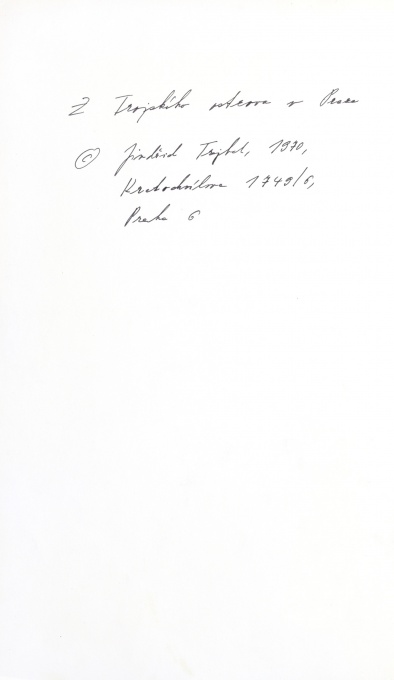 Z Trojského ostrova v Praze
© Jindřich Trejbal, 1970,
Kratochvílova 1749/6,
Praha 6